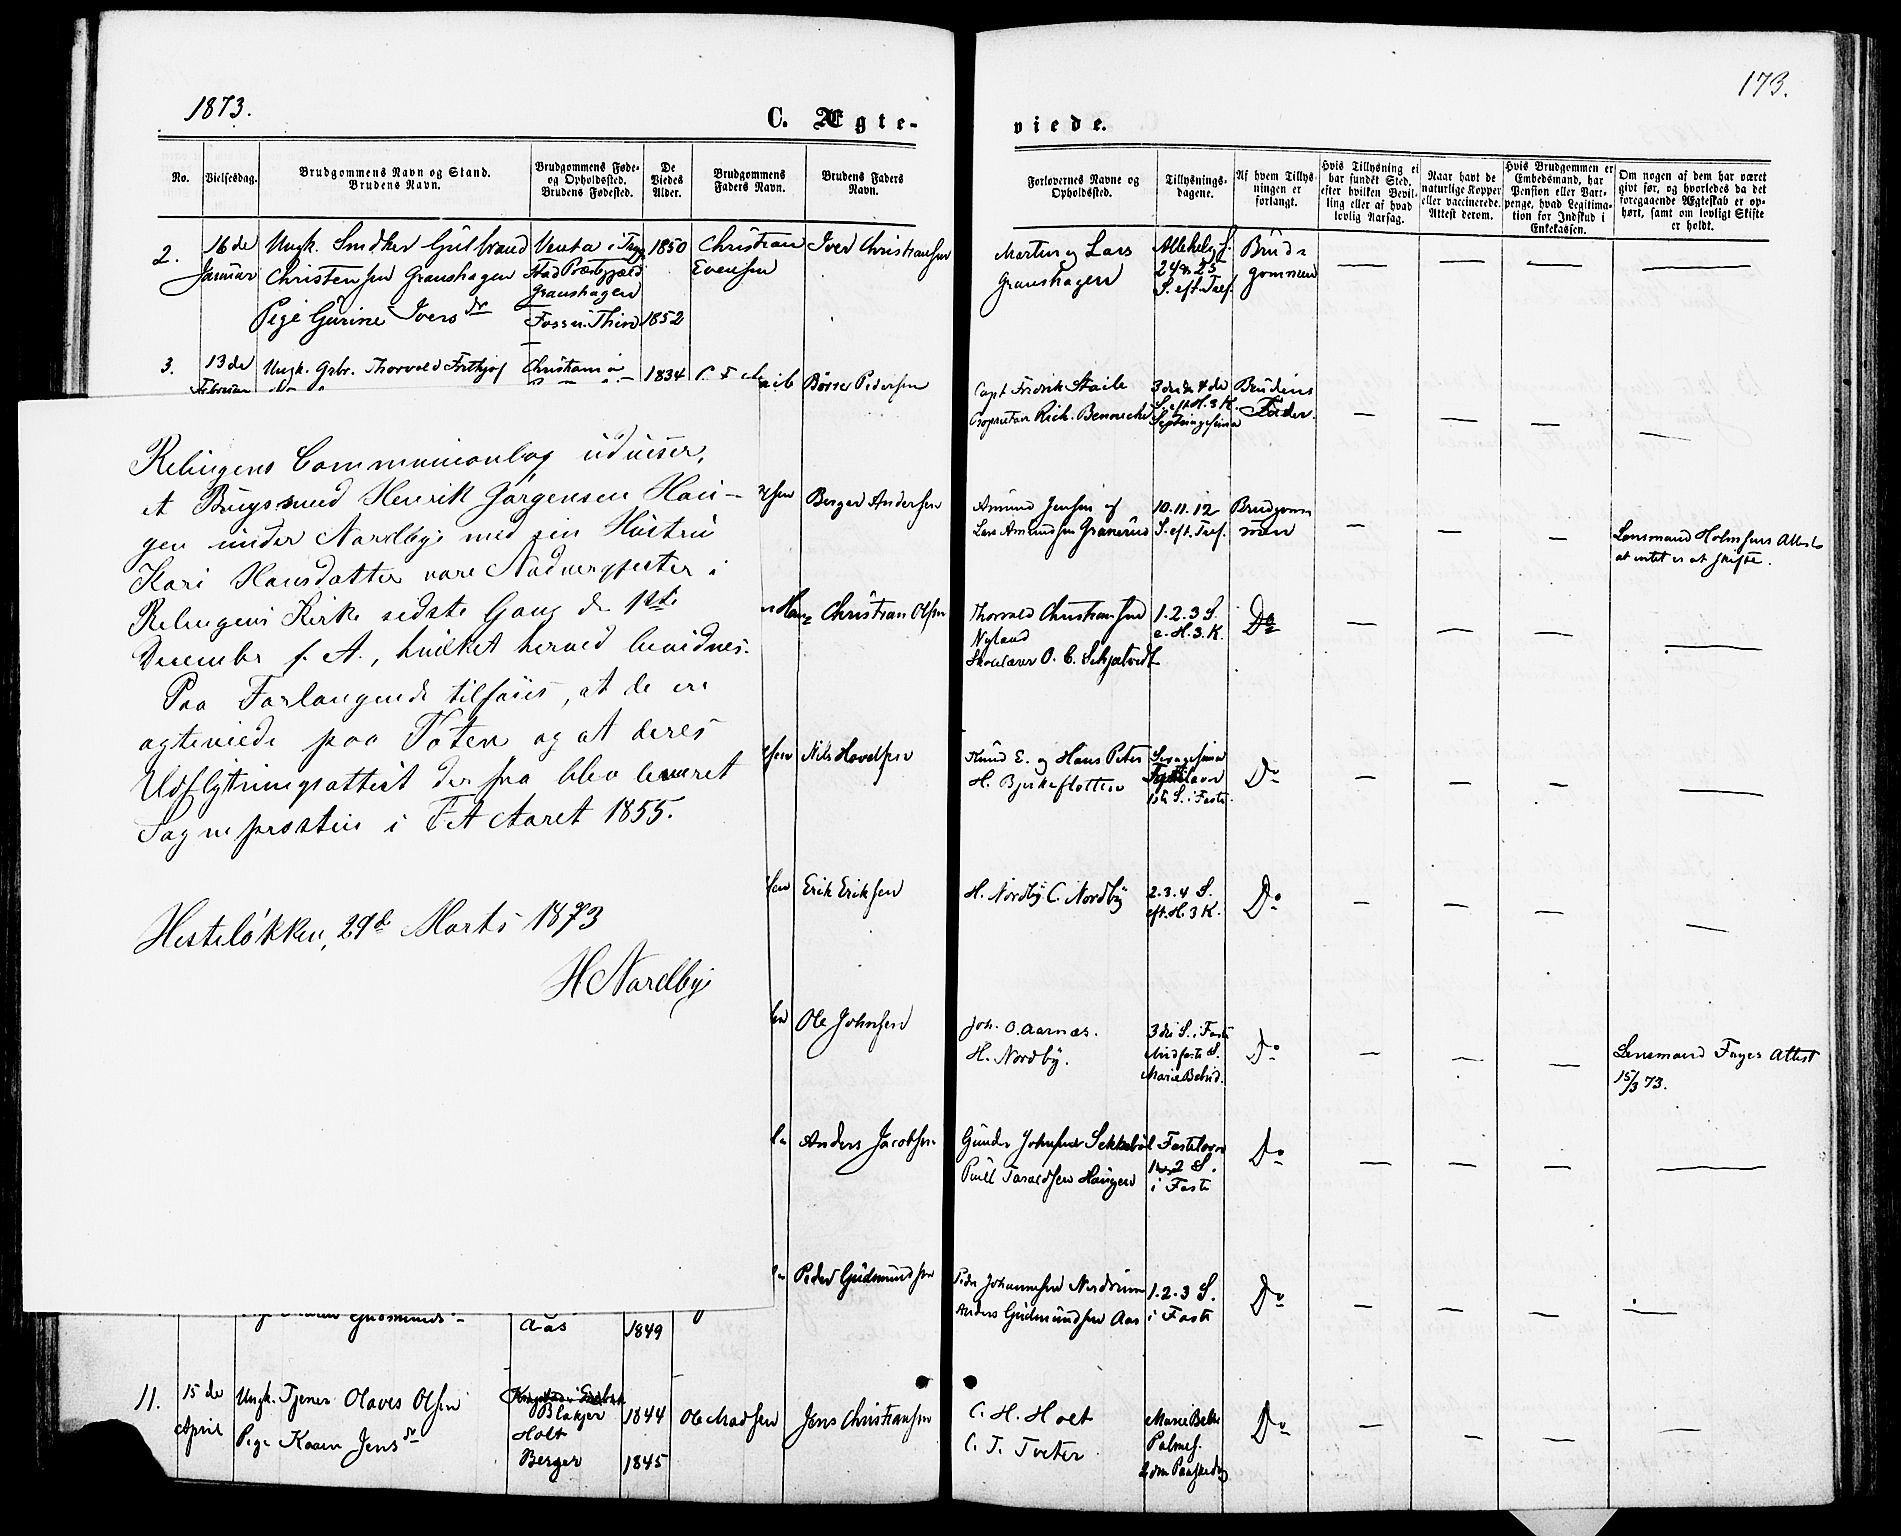 1873.
173.
C. Ægte-
viede.
No.
Vielsesdag.
Brudgommens Navn og Stand.
Brudens Navn.
Brudgommens Føde-
og Opholdssted.
Brudens Fødested.
De
Viedes
Alder.
Brudgommens
Faders Navn.
Brudens Faders
Navn.
Forlovernes Navne og
Opholdssted.
Tillysnings-
dagene.
Af hvem Tillys-
ningen er
forlangt.
Hvis Tillysning ei
har fundet Sted,
efter hvilken Bevil-
ling eller af hvad
lovlig Aarsag.
Naar havt de
naturlige Kopper
eller vaccinerede.
Attest derom.
Hvis Brudgommen er
Embedsmand, har
Pension eller Vart-
penge, hvad Legitima-
tion for Indskud i
Enkekassen.
Om nogen af dem har været
givt før, og hvorledes da det
foregaaende Ægteskab er op-
hørt, samt om lovligt Skifte
er holdt.
2.
16de
Januar
Ungk. Snedker Gulbrand
Christensen Granshagen
Pige Gurine Iversdr
Granshagen
Fosser. Thin
1850
1852
Christian
Evensen
Iver Christiansen
Martin og Lars
Granshagen
24 & 25
S. eft. Tref.
Brud-
gommen
3.
13de
Februar
Ungk. Gsbr. Thorvald Frithjof
Christiania
1834
Børre Pedersen
Capt Fredrik Staib
Proprietær Rich. Benneche
3die & 4de
S. eft H. 3 K.
Septuagesima
Brudens
Fader.
Relingens Communionbog udviser,
at Brugsmand Henrik Jørgensen Hau-
gen under Nordby med sin Hustru
Kari Hansdatter vare Nadvergjester i
Relingens Kirke sidste Gang de 1ste
December f. A., hvilket herved bevidnes.
Paa Forlangende tilføies, at de ere
ægteviede paa Toten og at deres
Udflytningsattest derfra blev leveret
Sognepresten i Fet Aaret 1855.
Hesteløkken, 29de Marts 1873
H Nordby
Berger Andersen
Amund Jensen af
Lars Amundsen Granerud
10. 11. 12
S. eft. Tref.
Brudgom
men
Lensmand Holmsens Attest
at intet er at skifte.
Christian Olsen
Thorvald Christiansen
Nyland
Skolelærer O. C. Schjatvedt
1. 2. 3 S.
e. H. 3. K.
Do
Nils Havelsen
Knud E. og Hans Peter
H. Bjerkeflotten
Sexagesima
Fastelavn
1ste S. i Faste.
Do
Erik Eriksen
H. Nordby C. Nordby
2. 3. 4 S.
eft. H. 3 K.
Do
Ole Johnsen
Joh. O. Aarnæs.
H. Nordby.
3die S. i Faste
Midfaste S.
Marie Bebud.
Do
Lensmand Fayes Attest
15/3 73.
Anders Jacobsen
Gunder Johnsen Sekkelsöl
Paul Taraldsen Haugen
Fastelavn
1 og 2 S.
i Faste
Do
Peder Gudmundsen
Peder Johannesen Nordrum
Anders Gudmundsen Aas
1. 2. 3 S.
i Faste
Do
Aas
1849
11.
15de
April
Ungk. Tjener Olaves Olsen
Pige Karen Jensdr
Blakjer
Holt
Berger
1844
1845
Ole Madsen
Jens Christiansen
C. H. Holt
C. T. Tveter
Marie Beb.
Palmes.
2den Paaskedag
Do